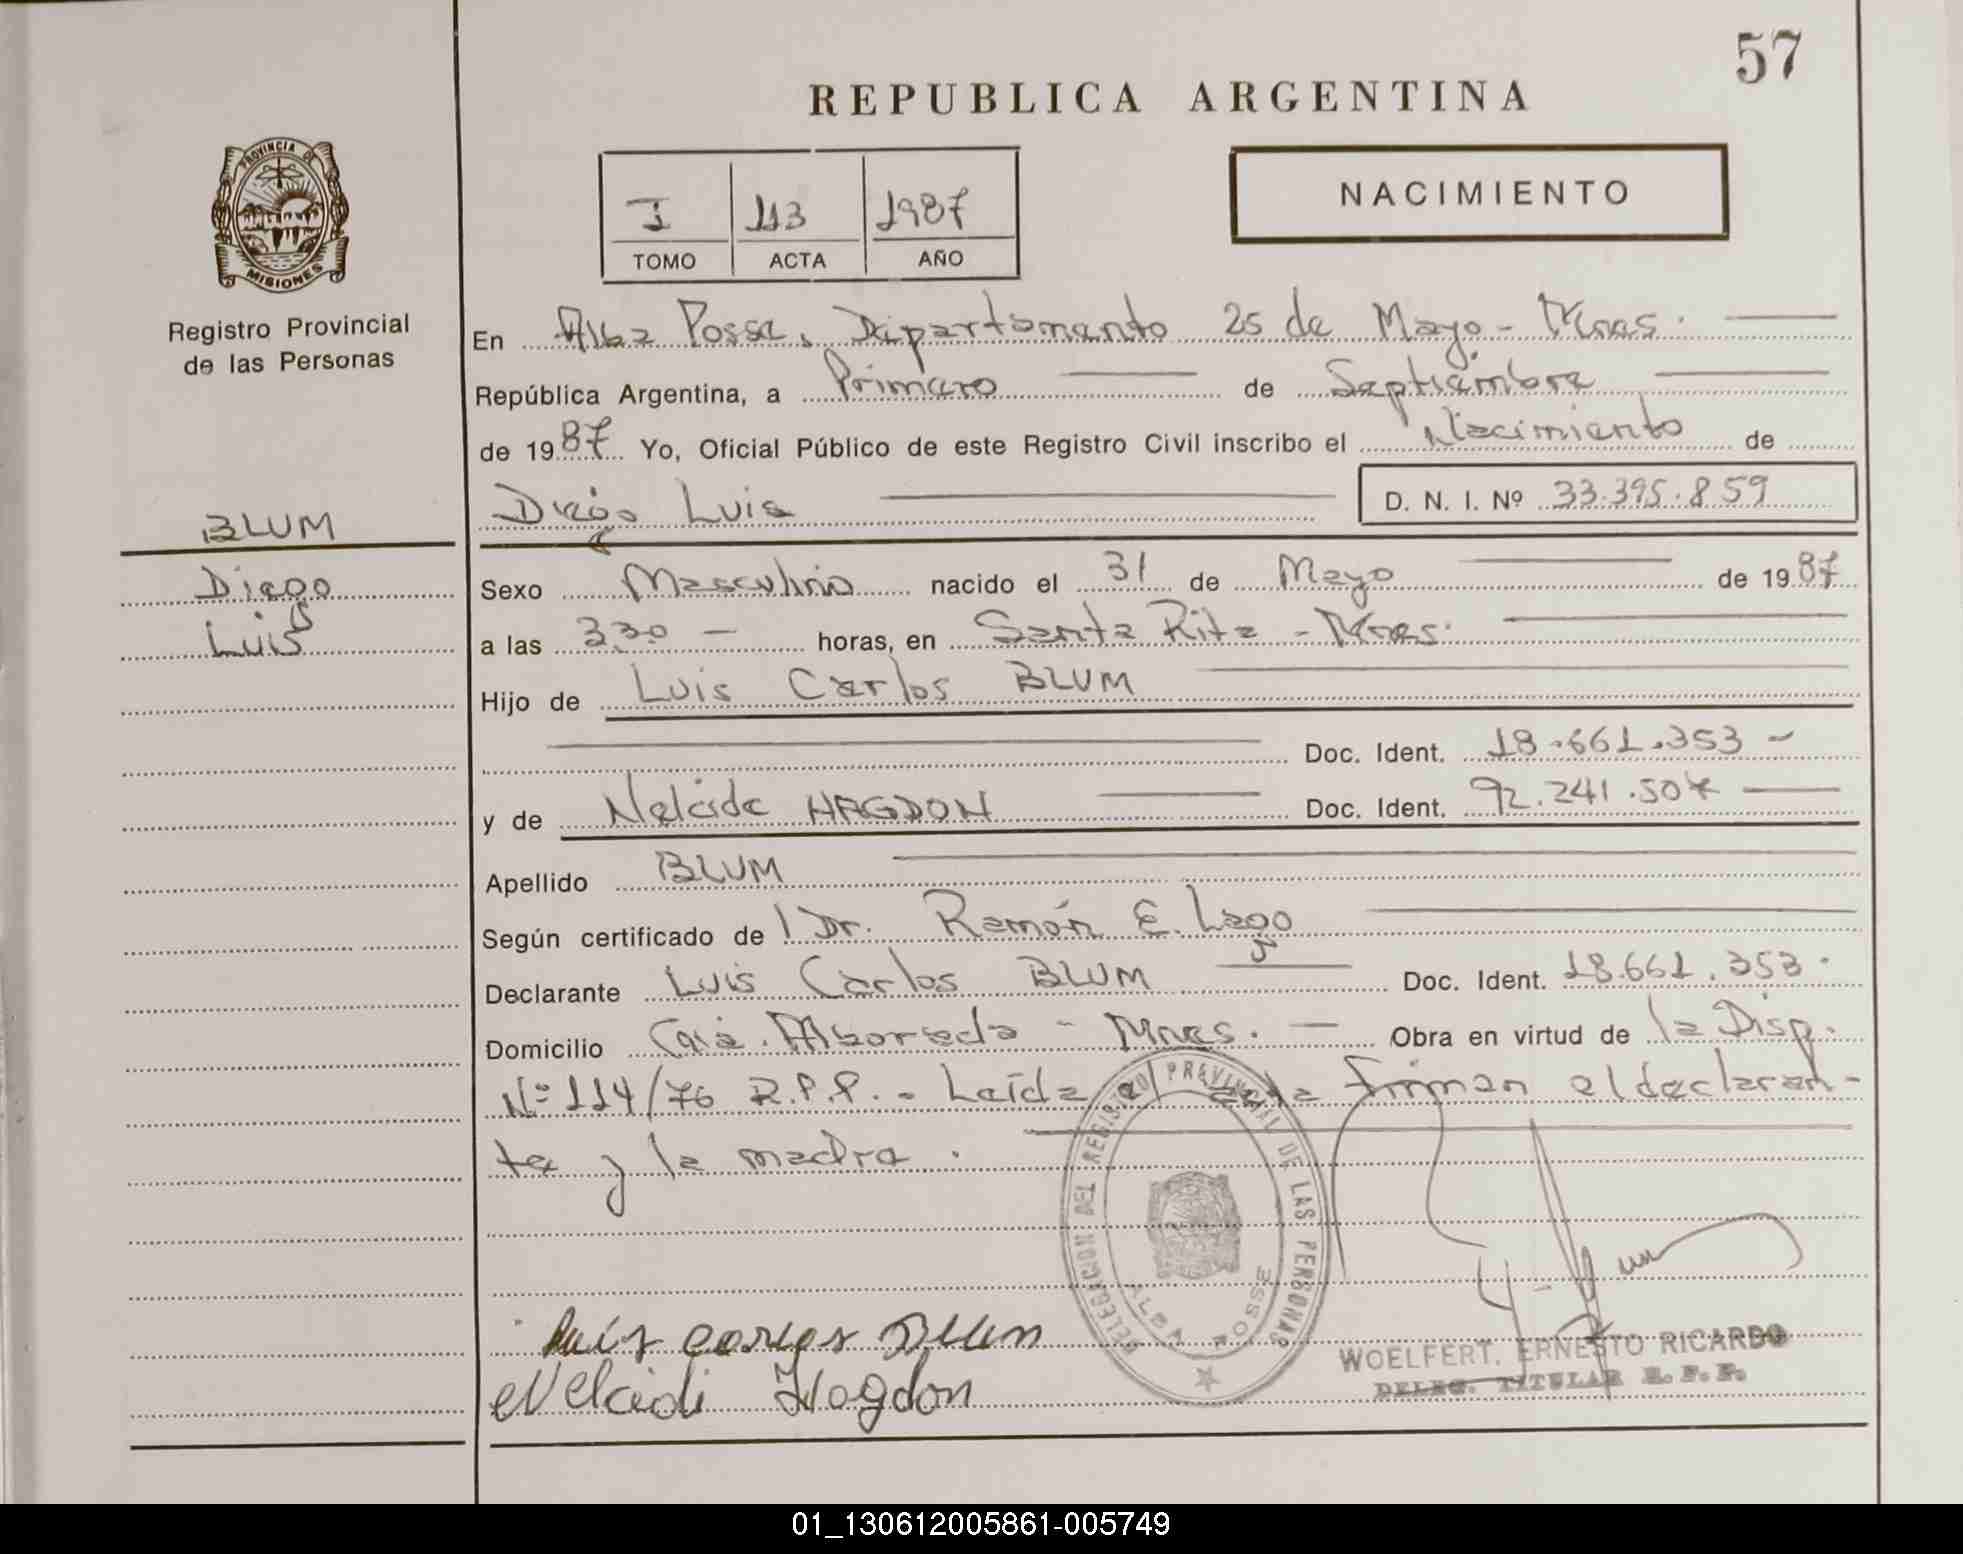 57
REPUBLICA ARGENTINA
PROVINCIA DE
MISIONES
I 113 1987
TOMO ACTA AÑO
NACIMIENTO
Registro Provincial
de las Personas
En Alba Posse, Departamento 25 de Mayo - Mnes.
República Argentina, a Primero de Septiembre
de 1987 Yo, Oficial Público de este Registro Civil inscribo el Nacimiento de
Diego Luis D. N. I. Nº 33.395.859
BLUM
Diego
Luis
Sexo Masculino nacido el 31 de Mayo de 1987
a las 3,30 - horas, en Santa Rita - Mnes.
Hijo de Luis Carlos BLUM
Doc. Ident. 18.661.353 -
y de Nelcide HAGDON Doc. Ident. 92.241.507
Apellido BLUM
Según certificado de Dr. Ramón E. Lago
Declarante Luis Carlos BLUM Doc. Ident. 18.661.353.
Domicilio Cnia. Alborada - Mnes. - Obra en virtud de la Disp.
Nº 114/76 R.P.P. - Leída el acta firman el declaran-
te y la madre.
DELEGACION DEL REGISTRO PROVINCIAL DE LAS PERSONAS
ALBA POSSE
Luis Carlos Blum
Nelcidi Hagdon
WOELFERT, ERNESTO RICARDO
DELEG. TITULAR R. P. P.
01_130612005861-005749